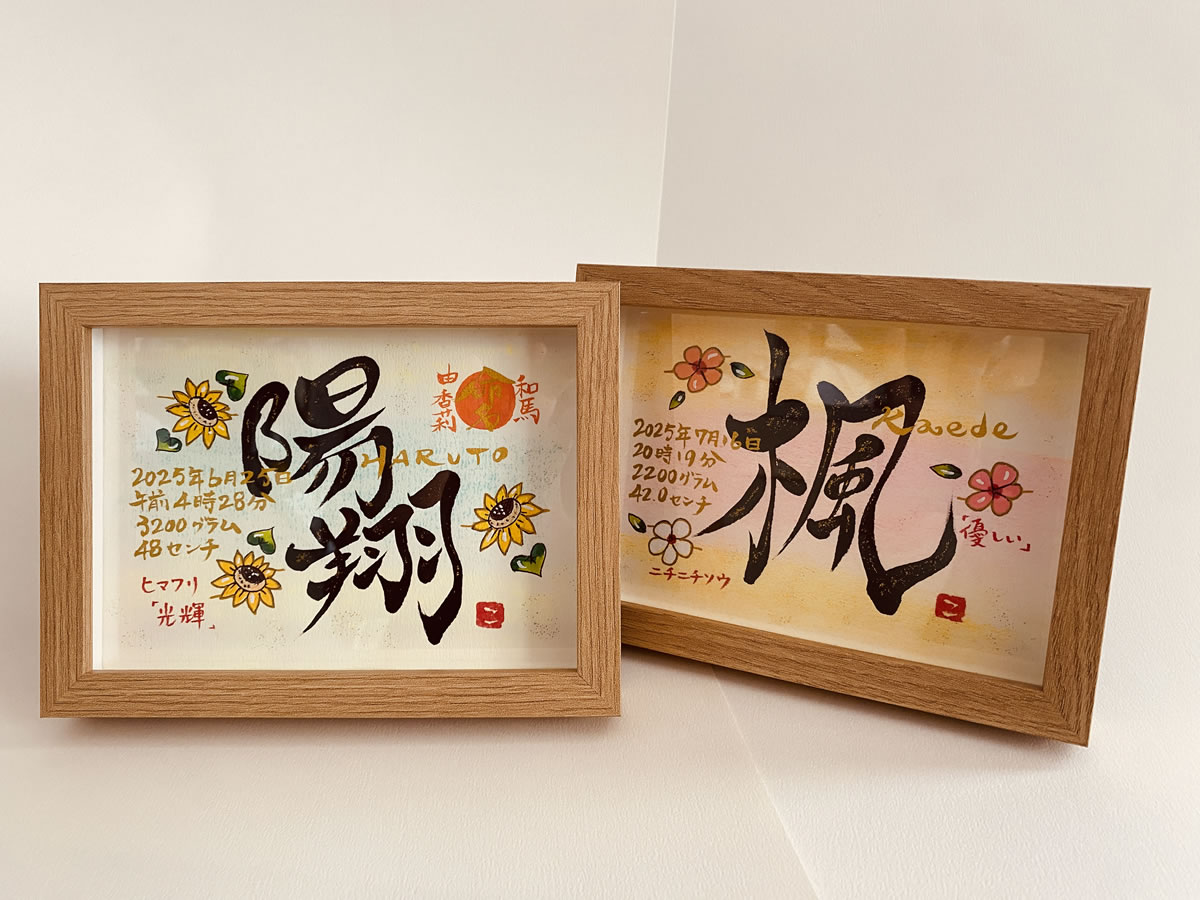 陽翔
HARUTO
由香莉
和馬
2025年6月25日
午前4時28分
3200グラム
48センチ
ヒマワリ
「光輝」
楓
Kaede
2025年7月16日
20時19分
2200グラム
42.0センチ
ニチニチソウ
「優しい」